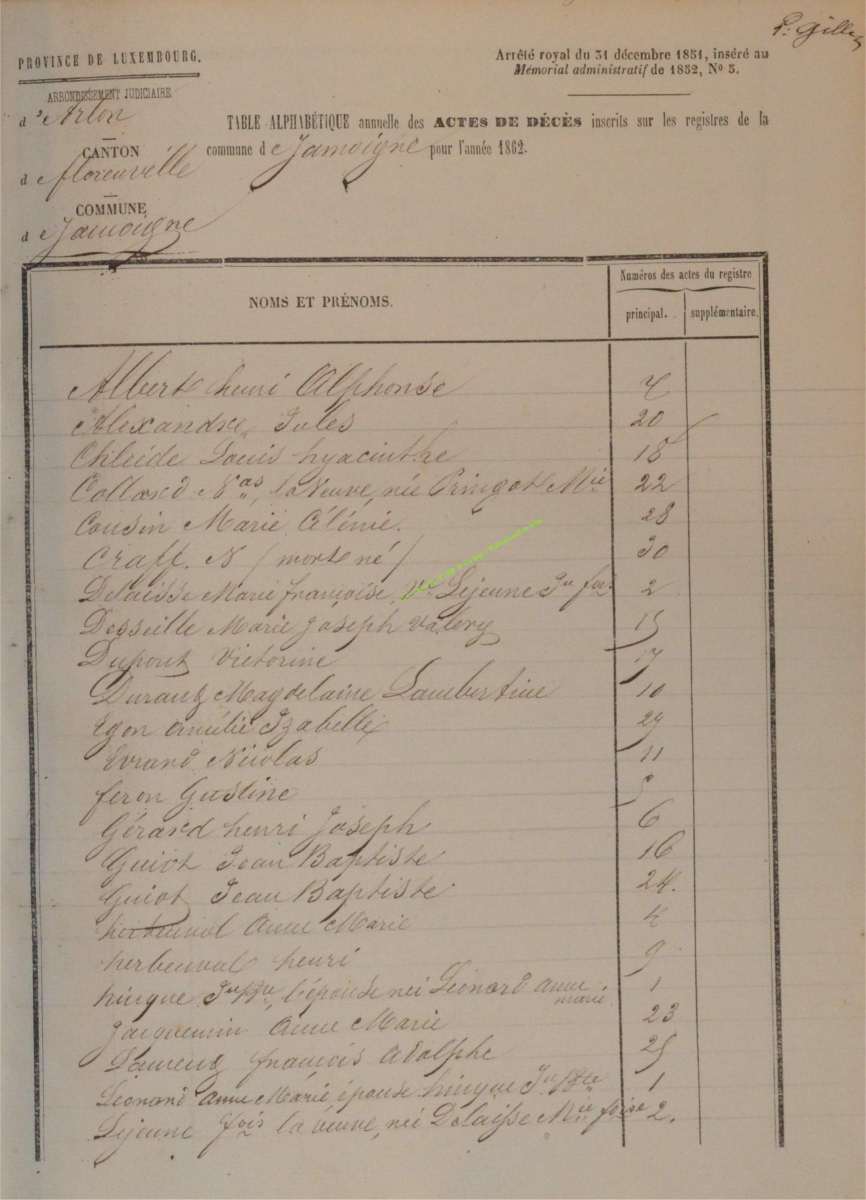 P. Gilles
PROVINCE DE LUXEMBOURG.
Arrêté royal du 31 décembre 1851, inséré au
Mémorial administratif de 1852, No 5.
ARRONDISSEMENT JUDICIAIRE
d'Arlon
TABLE ALPHABÉTIQUE annuelle des ACTES DE DÉCÈS inscrits sur les registres de la
CANTON
commune de Jamoigne pour l'année 1862.
de florenville
COMMUNE
de Jamoigne
NOMS ET PRÉNOMS.
Numéros des actes du registre
principal. supplémentaire.
Albert henri Alphonse 7
Alexandre Jules 20
Louis hyacinthe 18
Collard Nas, la Veuve, née Pringot Mie 22
Cousin Marie 28
Craff. N (mort né) 30
Delaisse Marie françoise Ve Lejeune Jn fois 2
Desseille Marie Joseph Valery 15
Dupont Victorine 17
Durant Magdelaine Lambertine 10
Egon Amélie Izabelle 29
Evrard Nicolas 11
feron Gustine 5
Gérard henri Joseph 6
Guiot Jean Baptiste 16
Guiot Jean Baptiste 24.
herbeuval Anne Marie 4
herbeuval henri 9
hinque Jn Bte, l'épouse née Léonard Anne marie 1
Jacquemin Anne Marie 23
Laurent françois Adolphe 25
Léonard Anne Marie épouse hinque Jn Bte 1
Lejeune fois la veuve, née Delaisse Mie foise 2.